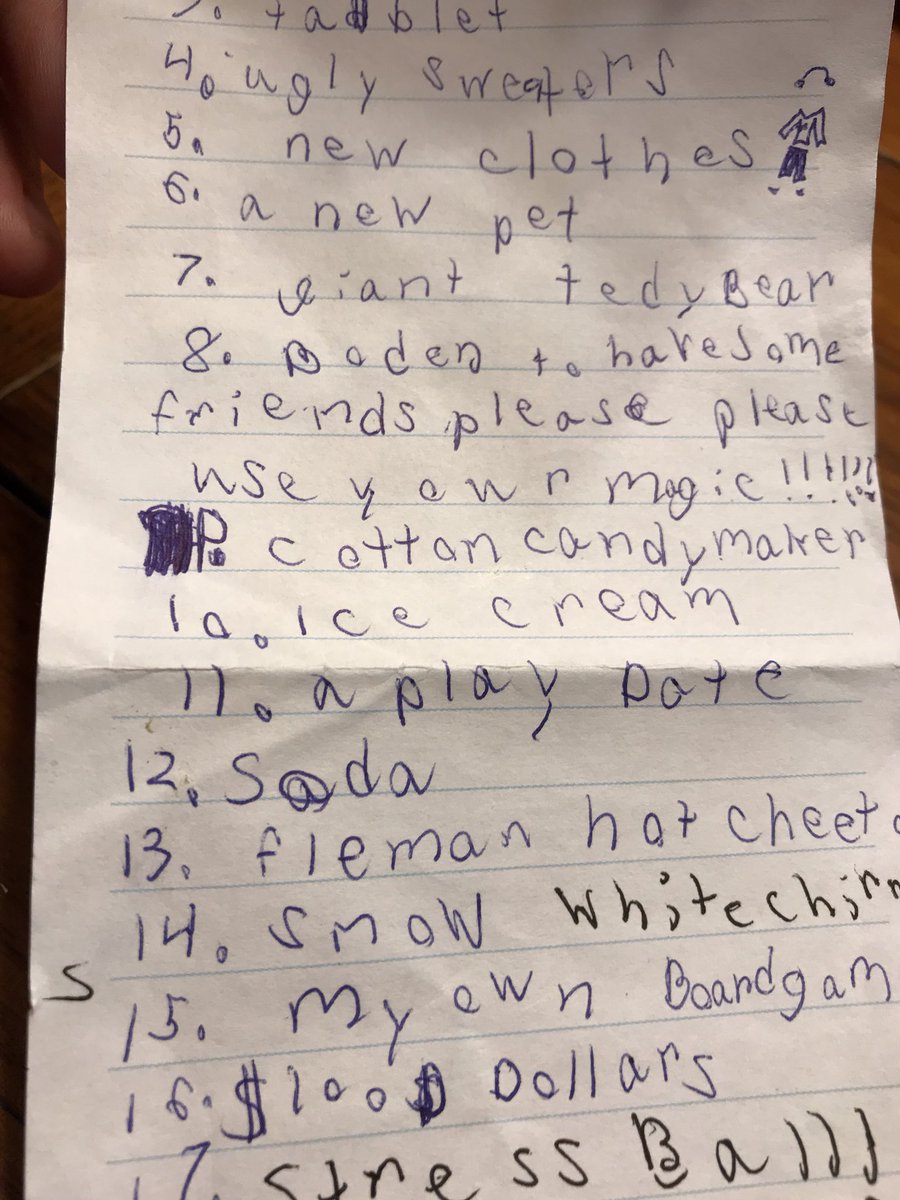 tablet
4. ugly sweaters
5. new clothes
6. a new pet
7. giant tedyBear
8. Boden to have some
friends please please
use yowr magic!!!!!!!
9. cotton candy maker
10. Ice cream
11. a play Date
12. Soda
13. fleman hot cheet
14. Snow White
S
15. My own Boardgam
16. $100 Dollars
17. stress Balll